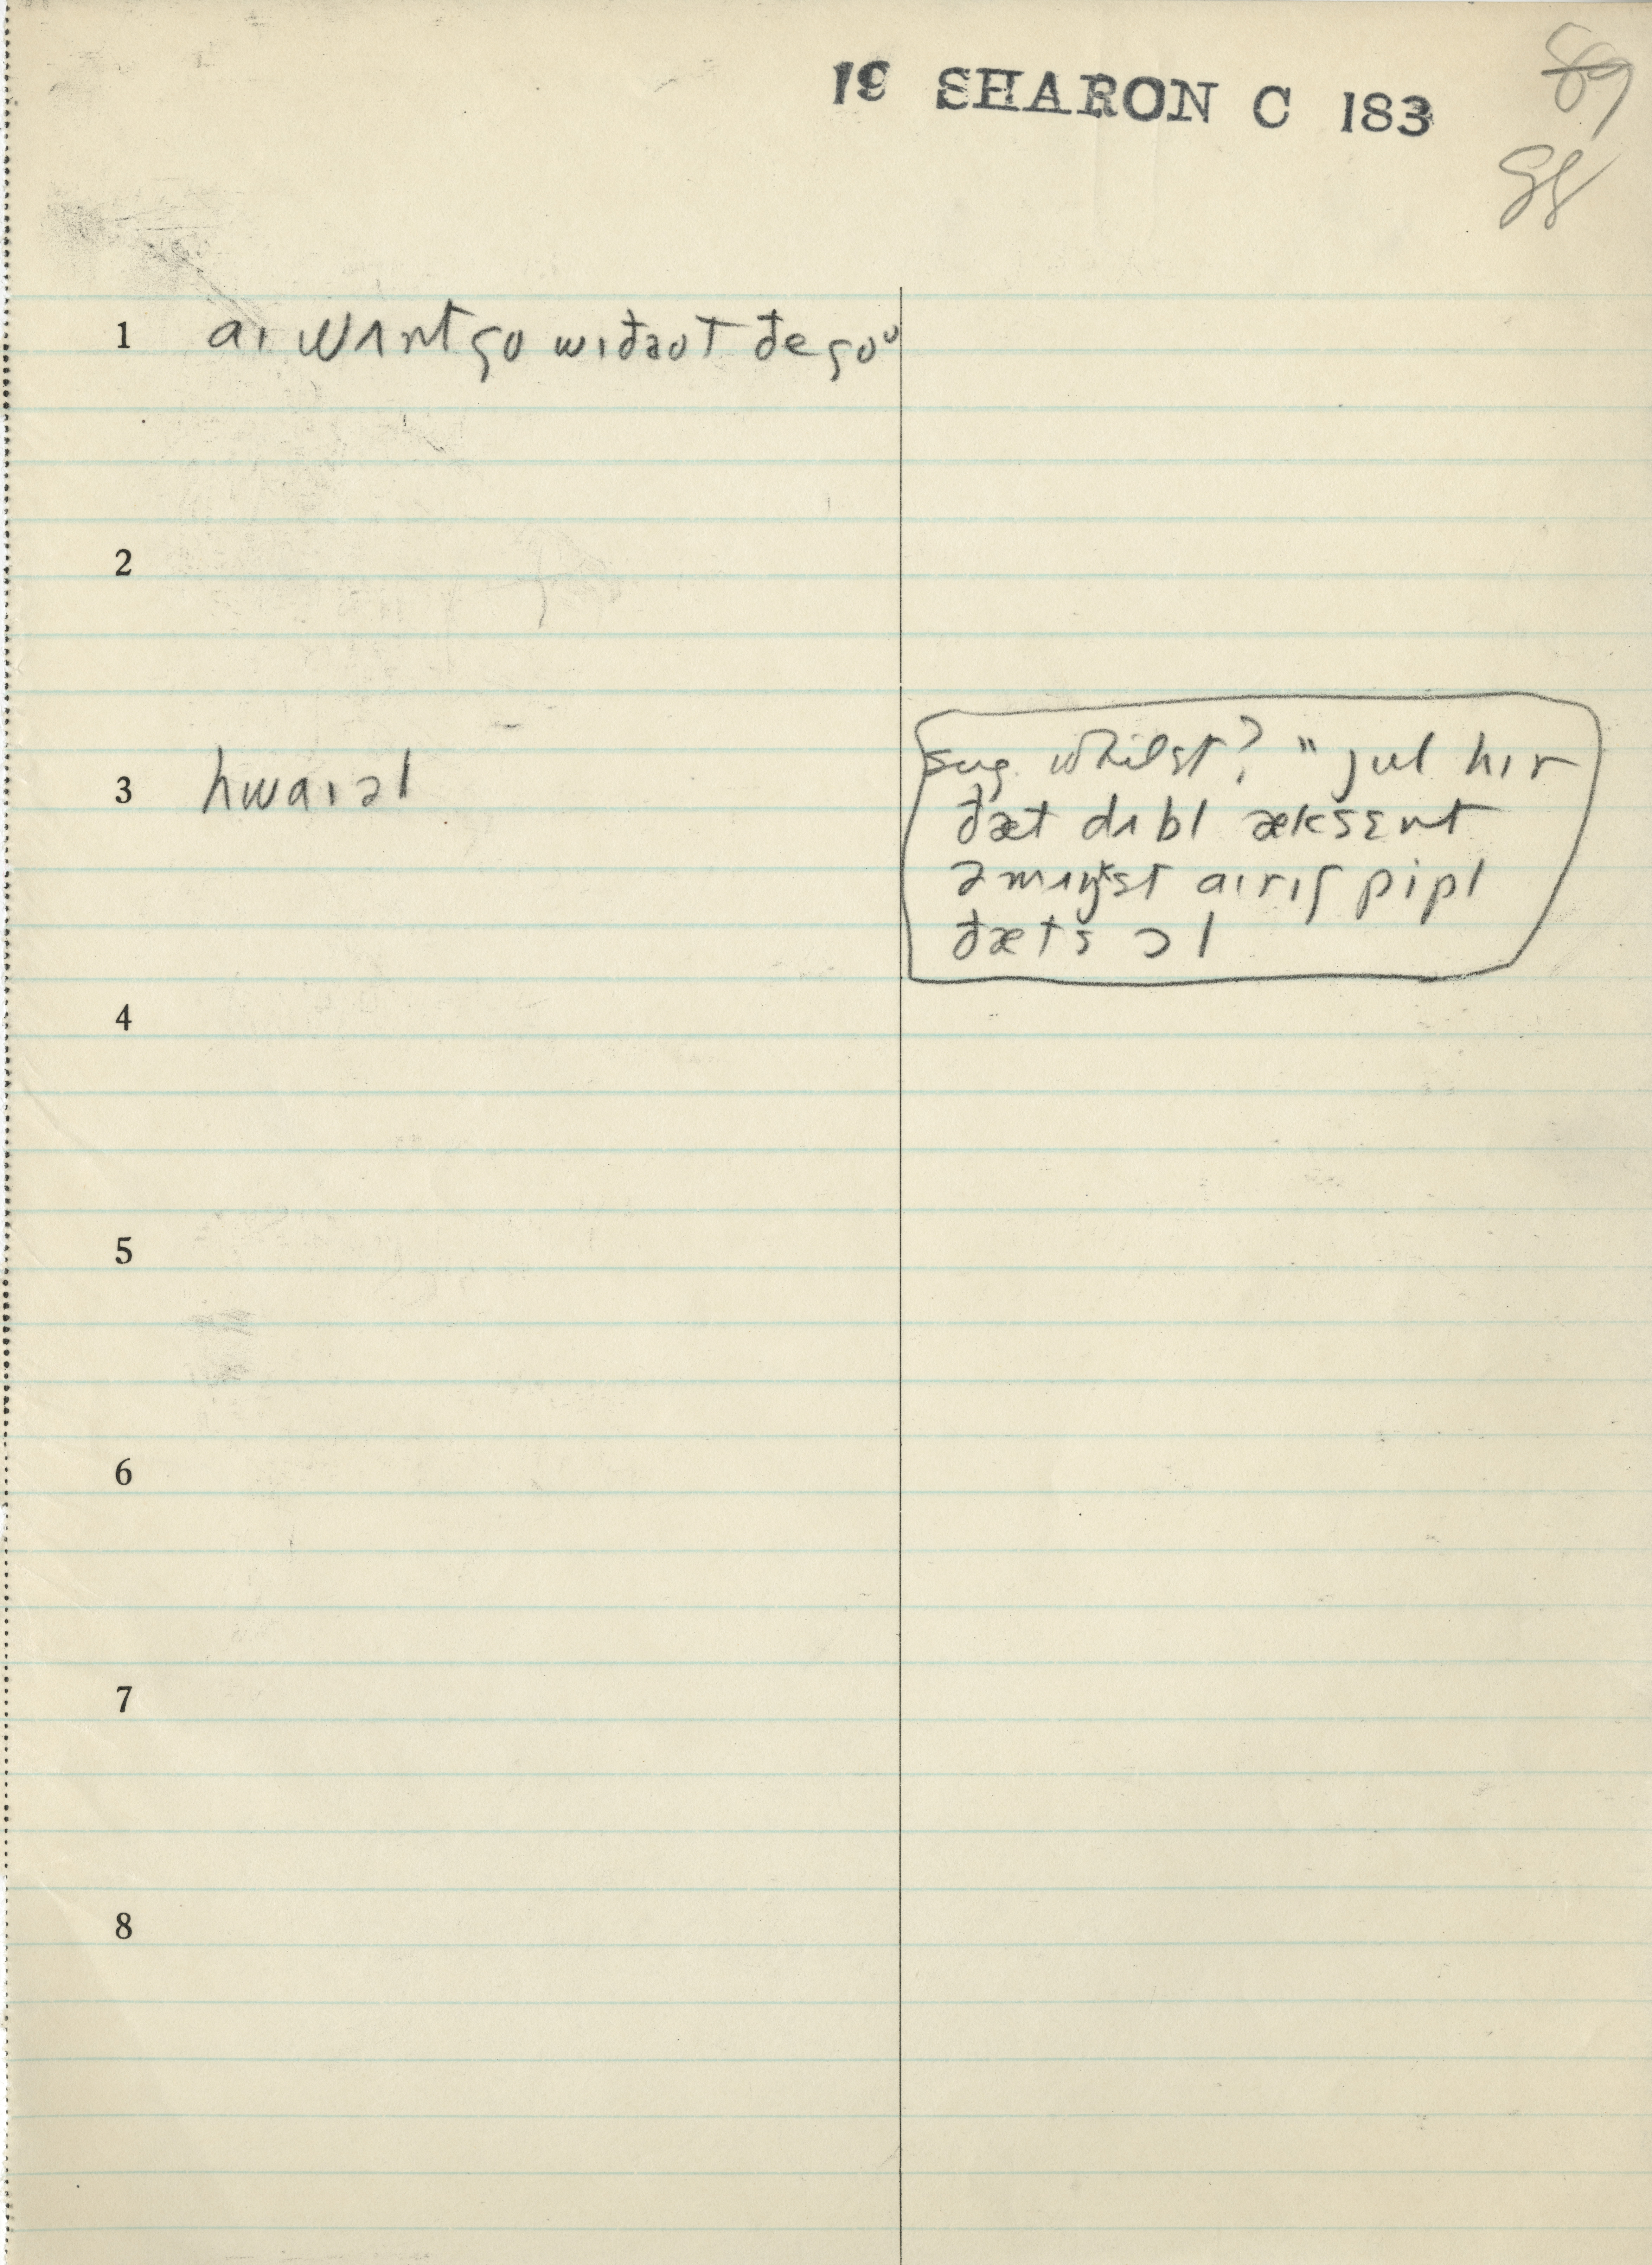 19 SHARON C 183
89
88
1 aɪ wʌnt go wɪđaʊt đe goᶷ
2
3 hwaɪəl
sug. whilst? " jul hɪr
đæt dʌbl æksɛnt
əmʌŋkst aɪrɪʃ pipl
đæts ɔl
4
5
6
7
8